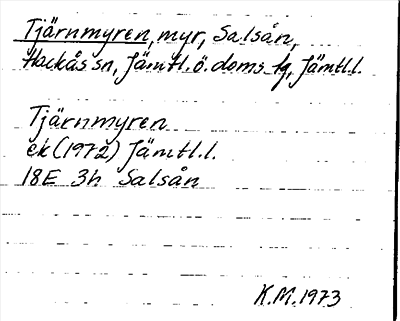 Tjärnmyren, myr, Salsån,
Hackås sn, Jämtl.ö. doms tg, Jämtl.l.
Tjärnmyren
ek (1972) Jämtl.l.
18E 3h Salsån
K.M. 1973